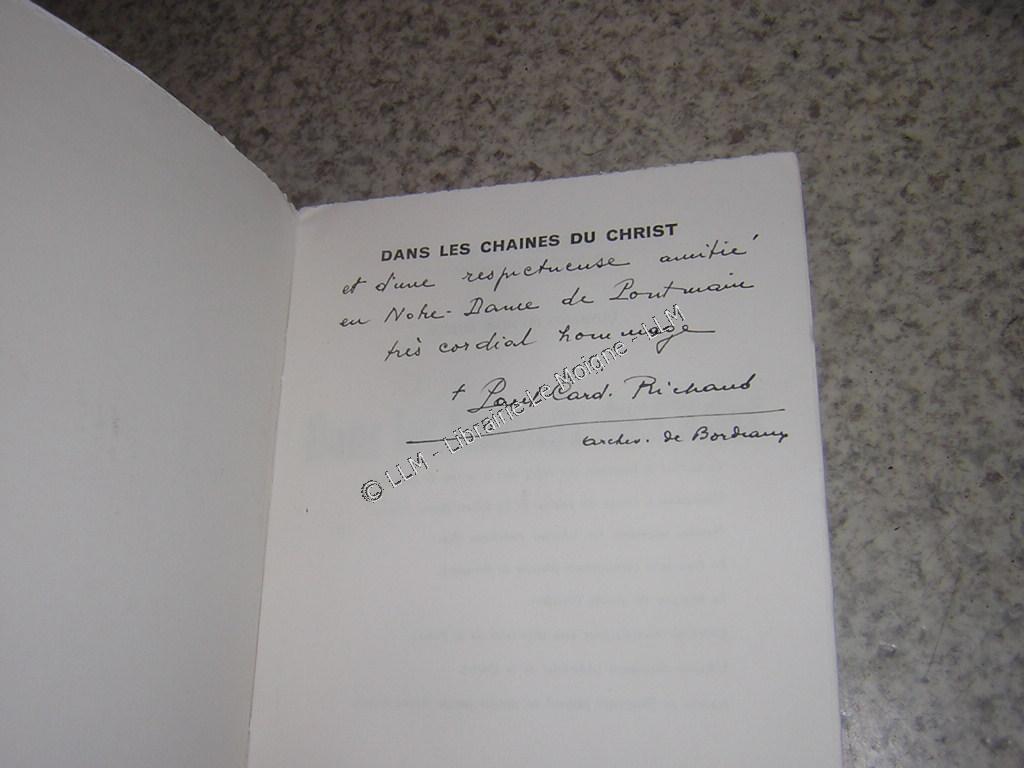 DANS LES CHAINES DU CHRIST
et d'une respectueuse amitié
en Notre-Dame de Pontmain
très cordial hommage
+ Paul Card. Richaud
archev. de Bordeaux
© LLM - Librairie Le Moigne - LLM